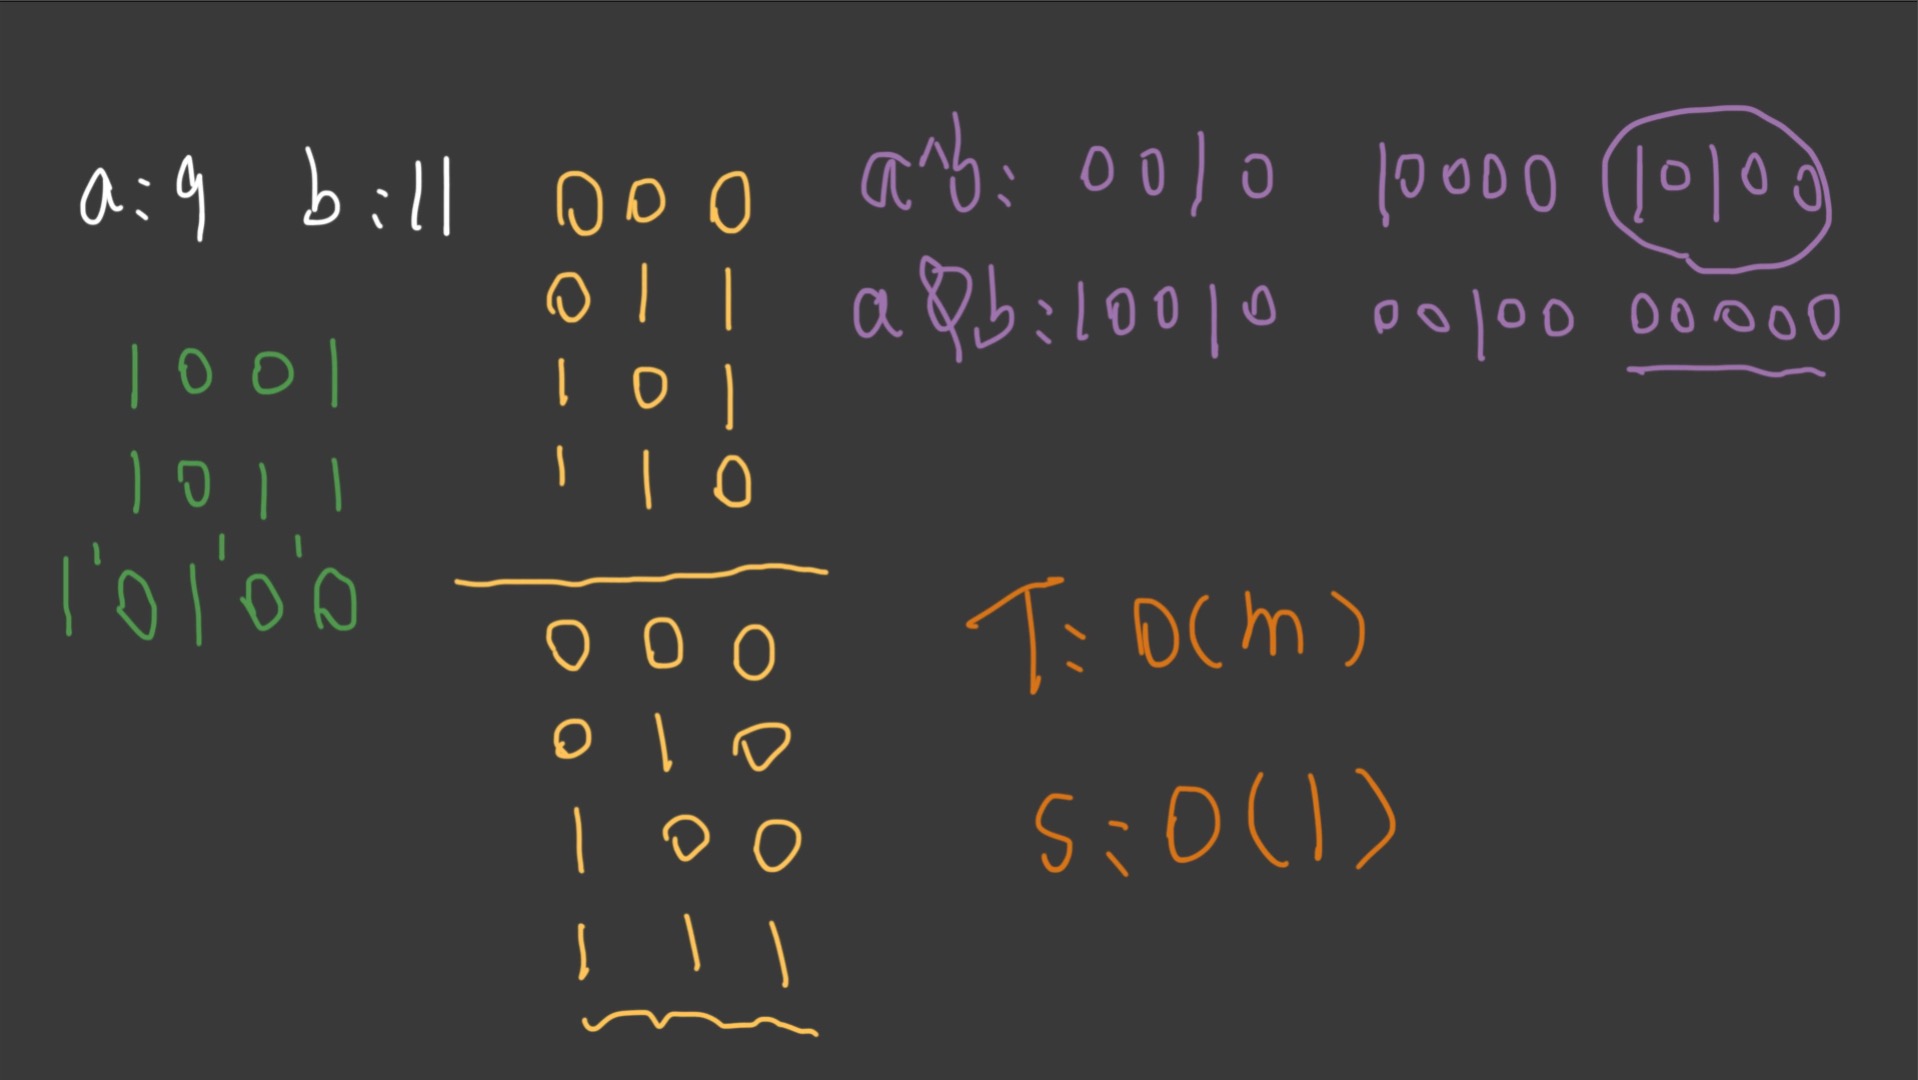 a:9 b:11
1001
1011
1 1 1
10100
000
011
101
110
000
010
100
111
a^b: 0010 10000 10100
a&b: 10010 00100 00000
T: O(m)
S: O(1)